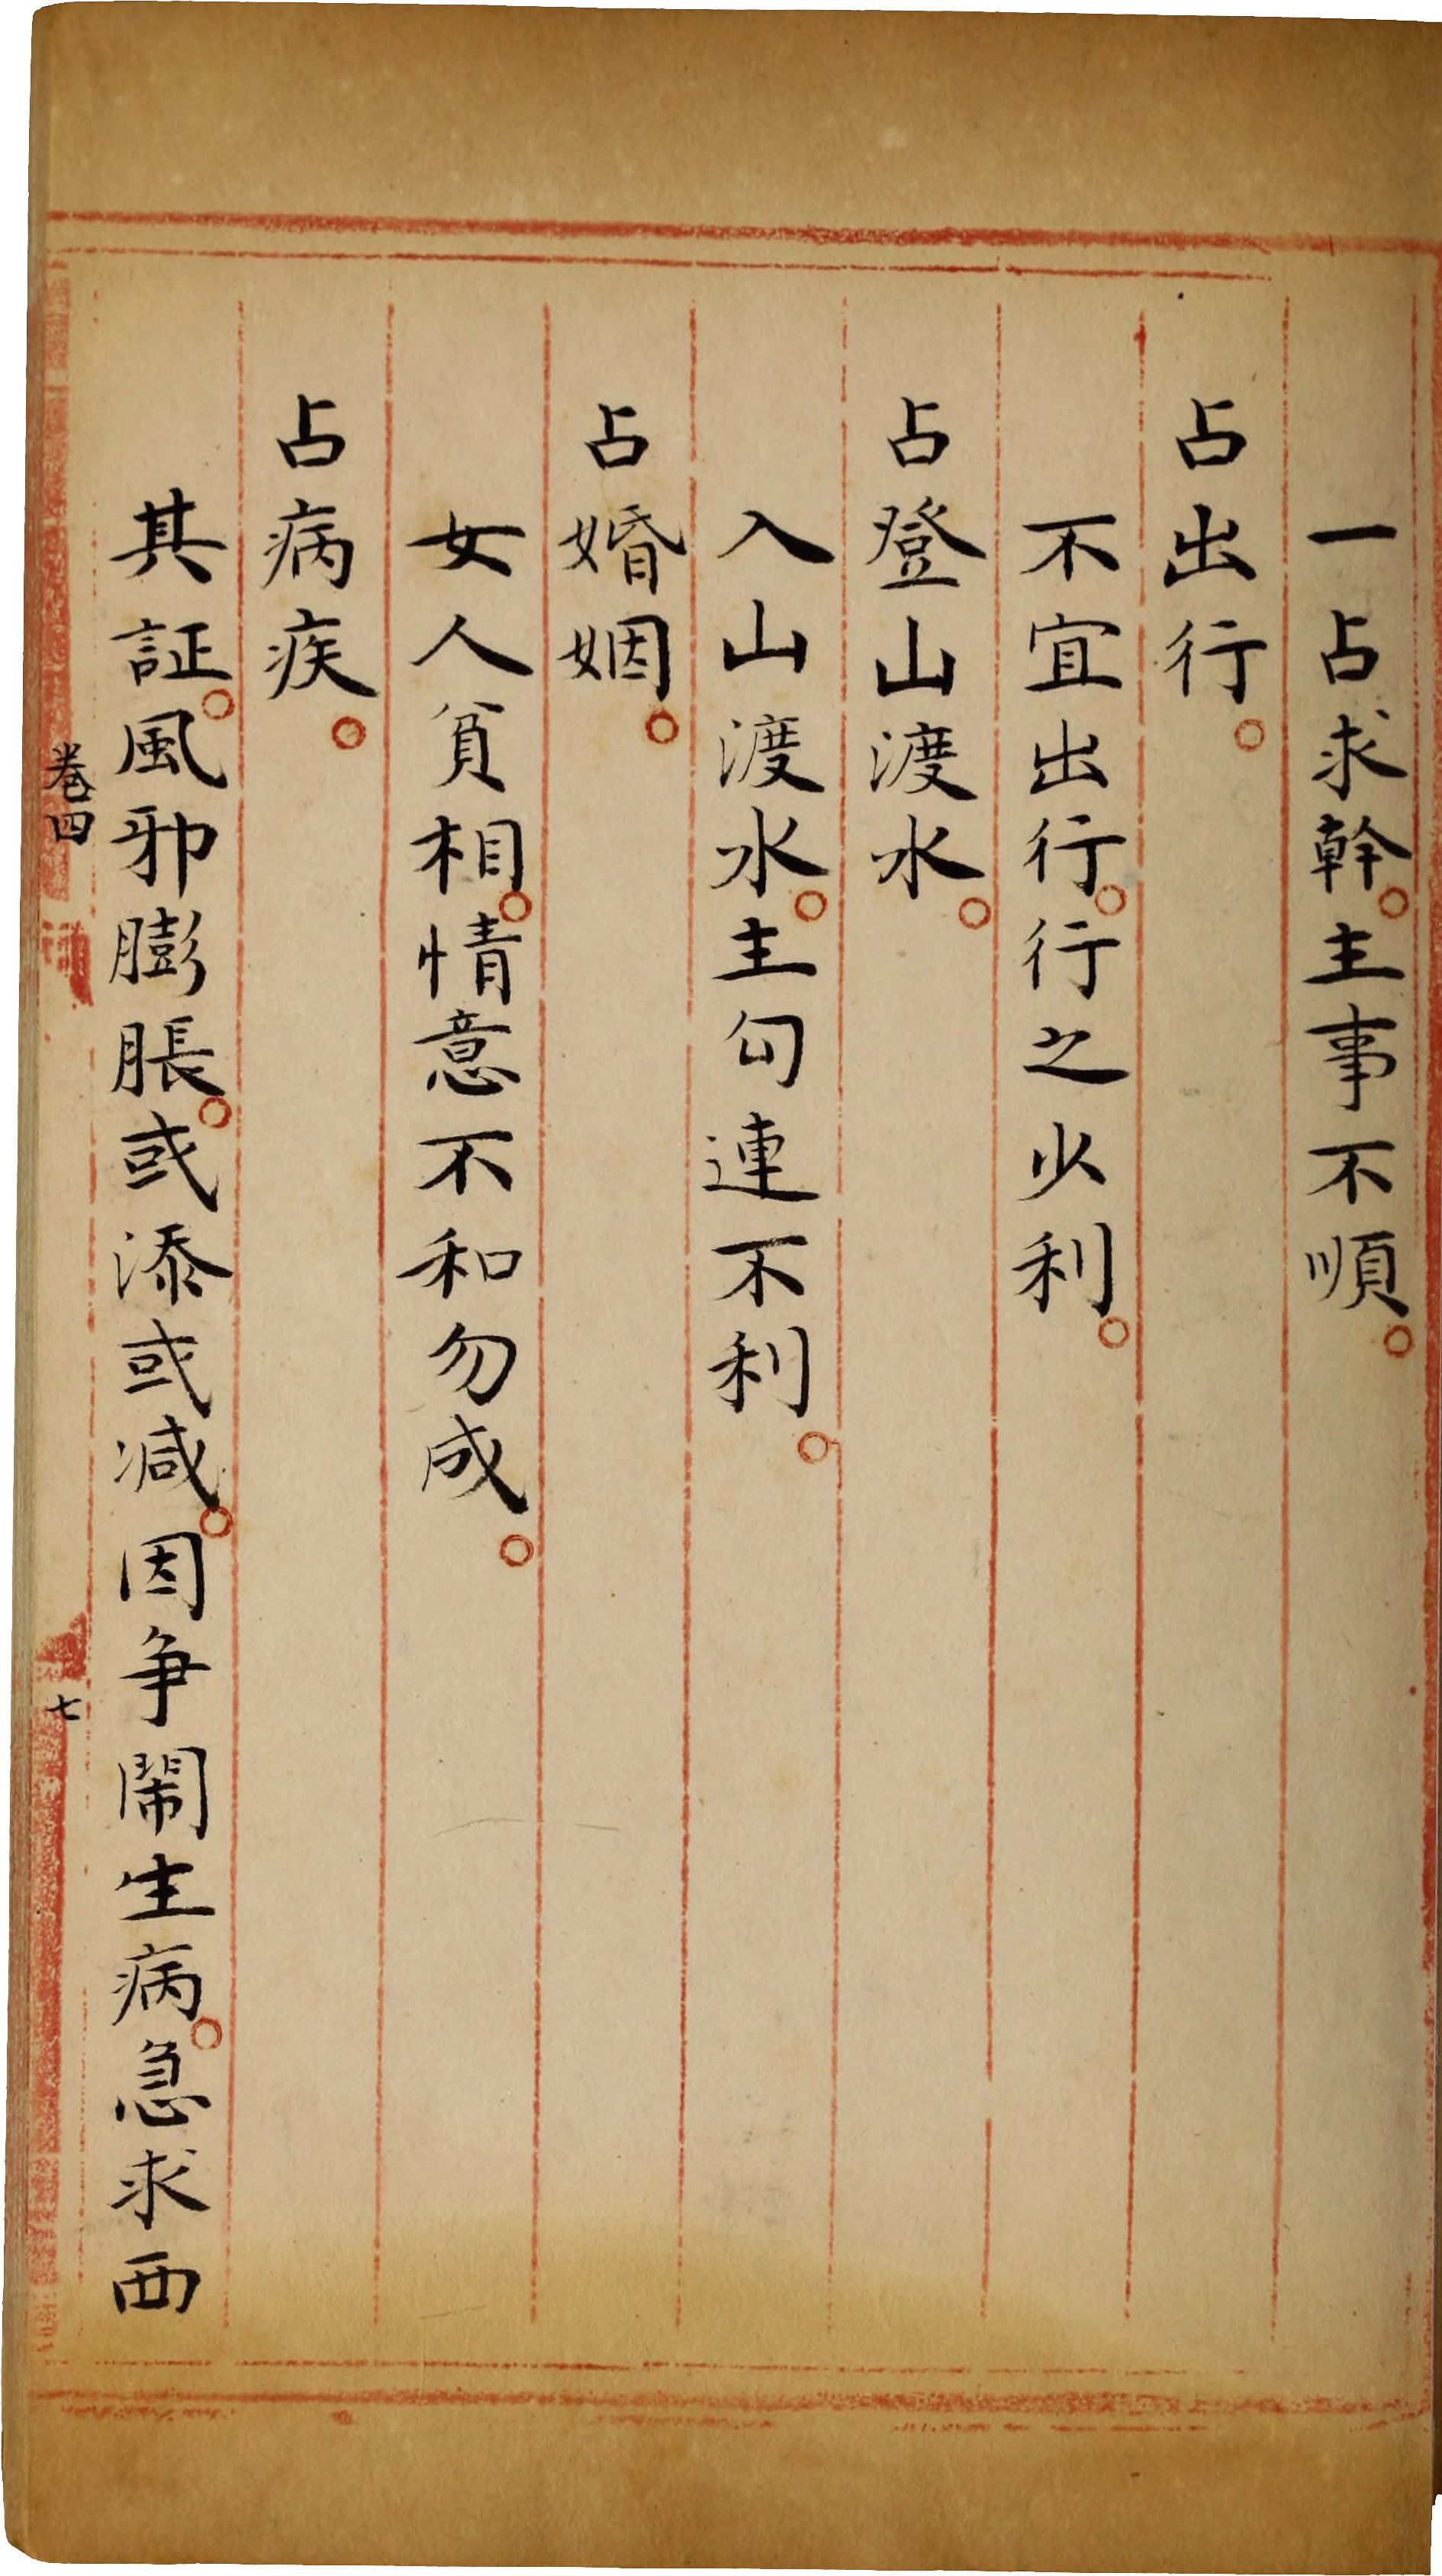 一占求幹。主事不順。
占出行。
不宜出行。行之少利。
占登山渡水。
入山渡水。主勾連不利。
占婚姻。
女人貧相。情意不和勿成。
占病疾。
其証。風邪膨脹。或添或減。因争鬧生病。急求西
卷四
七